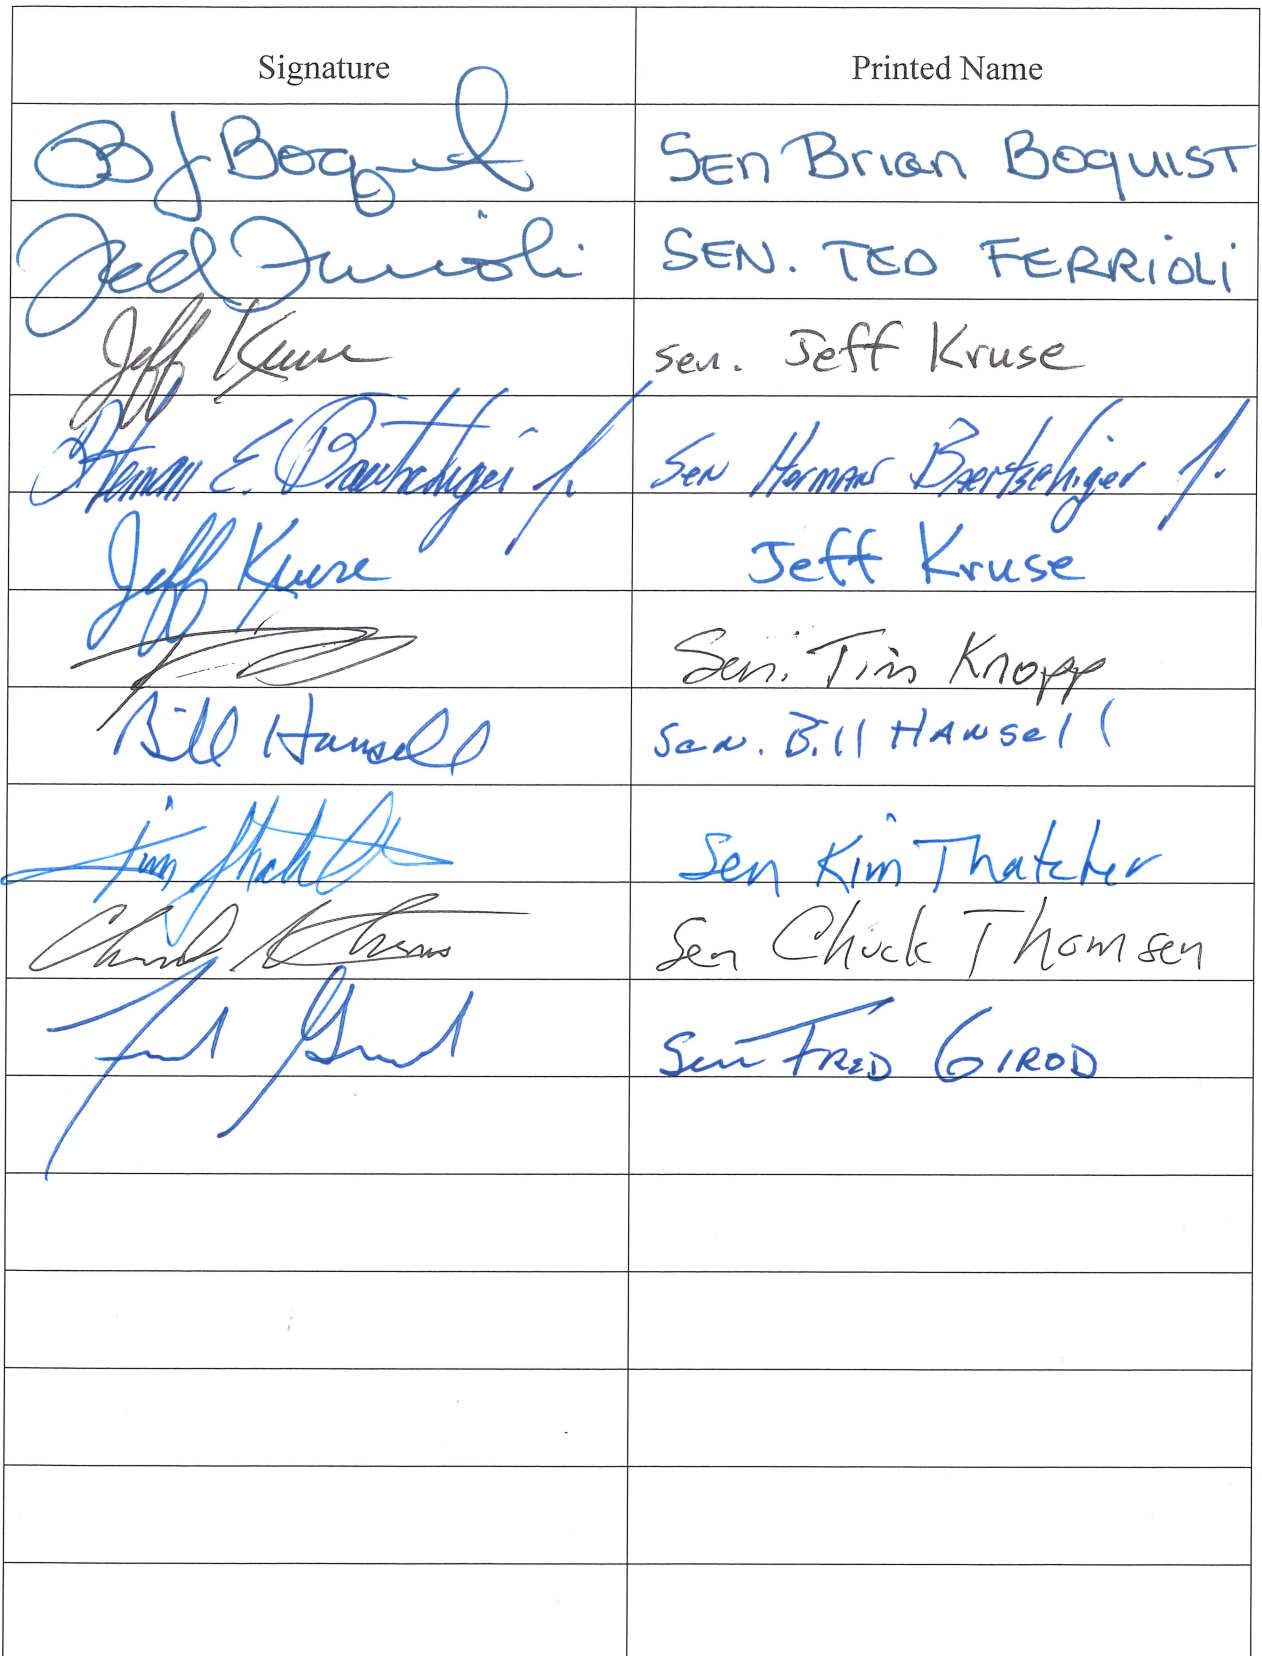 Signature Printed Name
B J Boquist Sen Brian Boquist
Ted Ferrioli SEN. TED FERRIOLI
Jeff Kruse Sen. Jeff Kruse
Herman E. Baertschiger Jr. Sen Herman Baertschiger Jr.
Jeff Kruse Jeff Kruse
Sen. Tim Knopp
Bill Hansell Sen. Bill Hansell
Kim Thatcher Sen Kim Thatcher
Chuck Thomsen Sen Chuck Thomsen
Fred Girod Sen FRED GIROD